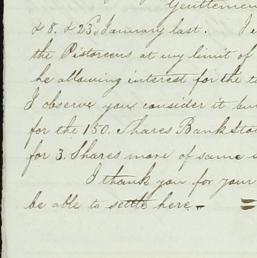 Gentlemen
& 8. & 23d January last. I
the Pistoreens at my limit of
he allowing interest for the
I observe you consider it
for the 150. Shares Bank Stoc
for 3. Shares more of same
I thank you for your
be able to settle here.